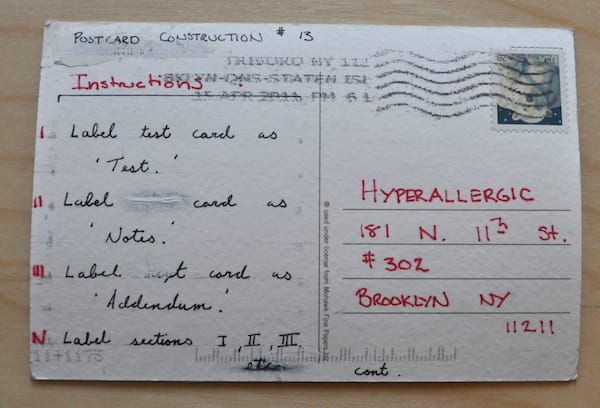 POSTCARD CONSTRUCTION # 13
TRIBORO NY 112
BKLYN-QNS-STATEN ISL
15 APR 2011 PM 5 L
Instructions:
I Label test card as
'Test.'
II Label card as
'Notes.'
III Label card as
'Addendum.'
IV Label sections I, II, III.
etc
cont.
11+1175
USA 28
HYPERALLERGIC
181 N. 11th St.
# 302
BROOKLYN NY
11211
® used under license from Mohawk Fine Papers, Inc.